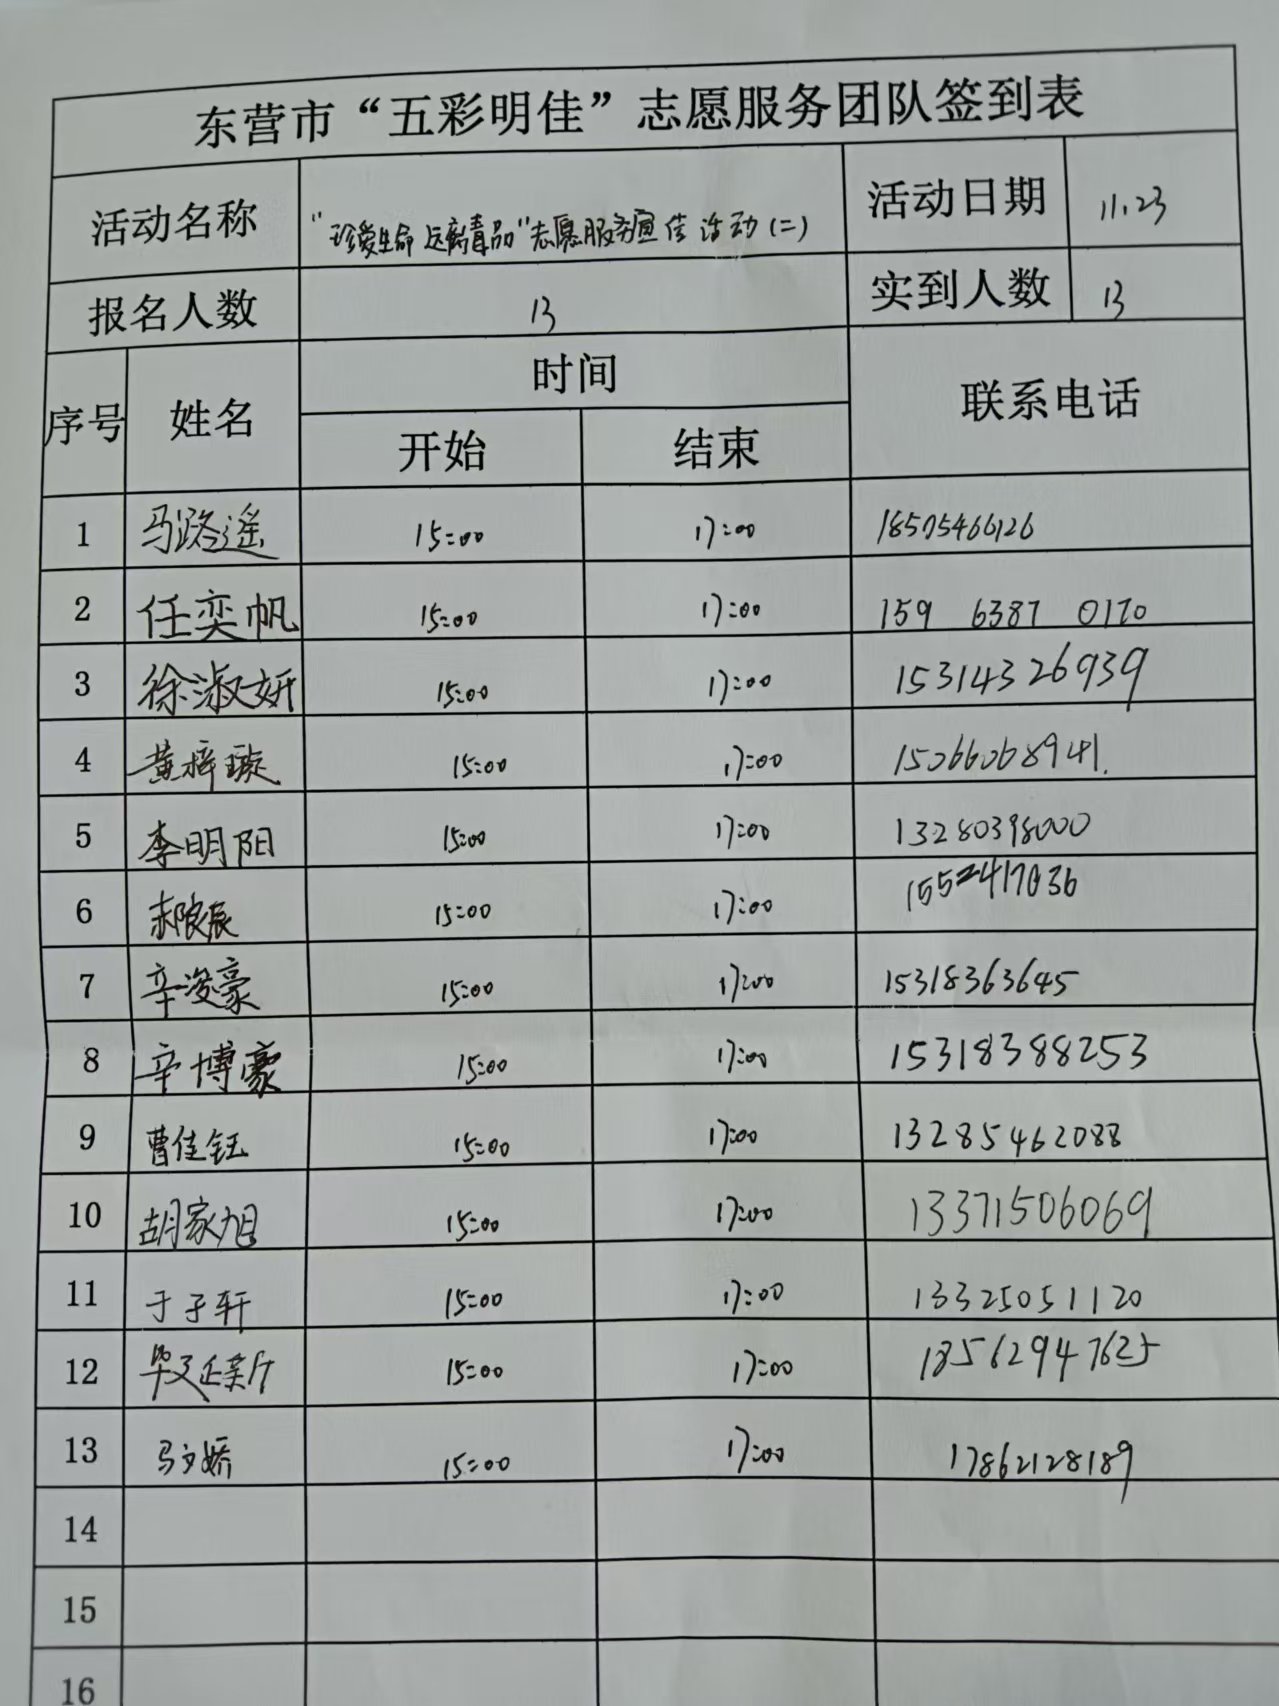 东营市“五彩明佳”志愿服务团队签到表
活动名称 “珍爱生命 远离毒品”志愿服务宣传活动(二) 活动日期 11.23
报名人数 13 实到人数 13
序号 姓名 时间 联系电话
开始 结束
1 马路遥 15:00 17:00 18505466126
2 任奕帆 15:00 17:00 159 6387 0170
3 徐淑妍 15:00 17:00 15314326939
4 黄梓璇 15:00 17:00 15066068941.
5 李明阳 15:00 17:00 13280398000
6 15:00 17:00
7 辛浚豪 15:00 17:00 15318363645
8 辛博豪 15:00 17:00 15318388253
9 曹佳钰 15:00 17:00 13285462088
10 胡家旭 15:00 17:00 13371506069
11 于子轩 15:00 17:00 13325051120
12 15:00 17:00 18562947625
13 马文娇 15:00 17:00 17862128189
14
15
16